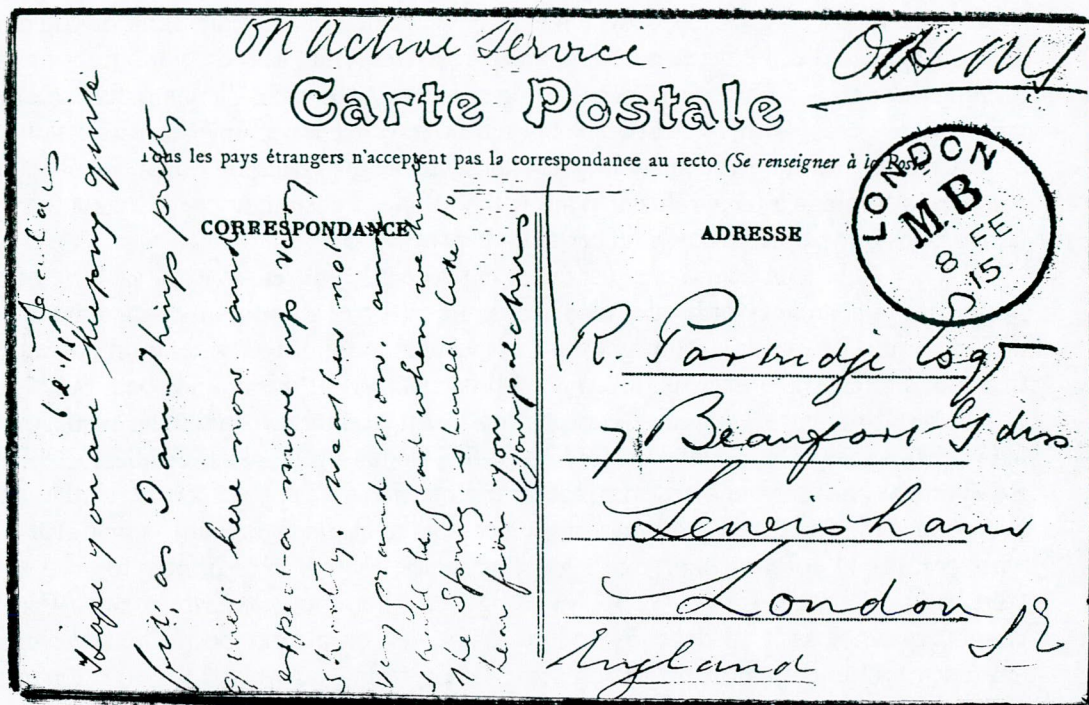 On Active Service
OHMS
Carte Postale
Tous les pays étrangers n'acceptent pas la correspondance au recto (Se renseigner à la Poste
CORRESPONDANCE
ADRESSE
LONDON
MB
8 FE
15
Calais
6.2.15
Hope you are keeping quite
fit as I am. Things pretty
quiet here now and
expect a move up very
shortly. Weather not
very grand now. and
shall be glad when we have
the Spring. Should like to
hear from you
Your pal
R. Partridge Esqr
7 Beaufort Gdns
Lewisham
London
SE
England